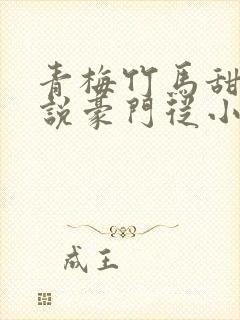 青梅竹馬甜
說豪門從小
成王